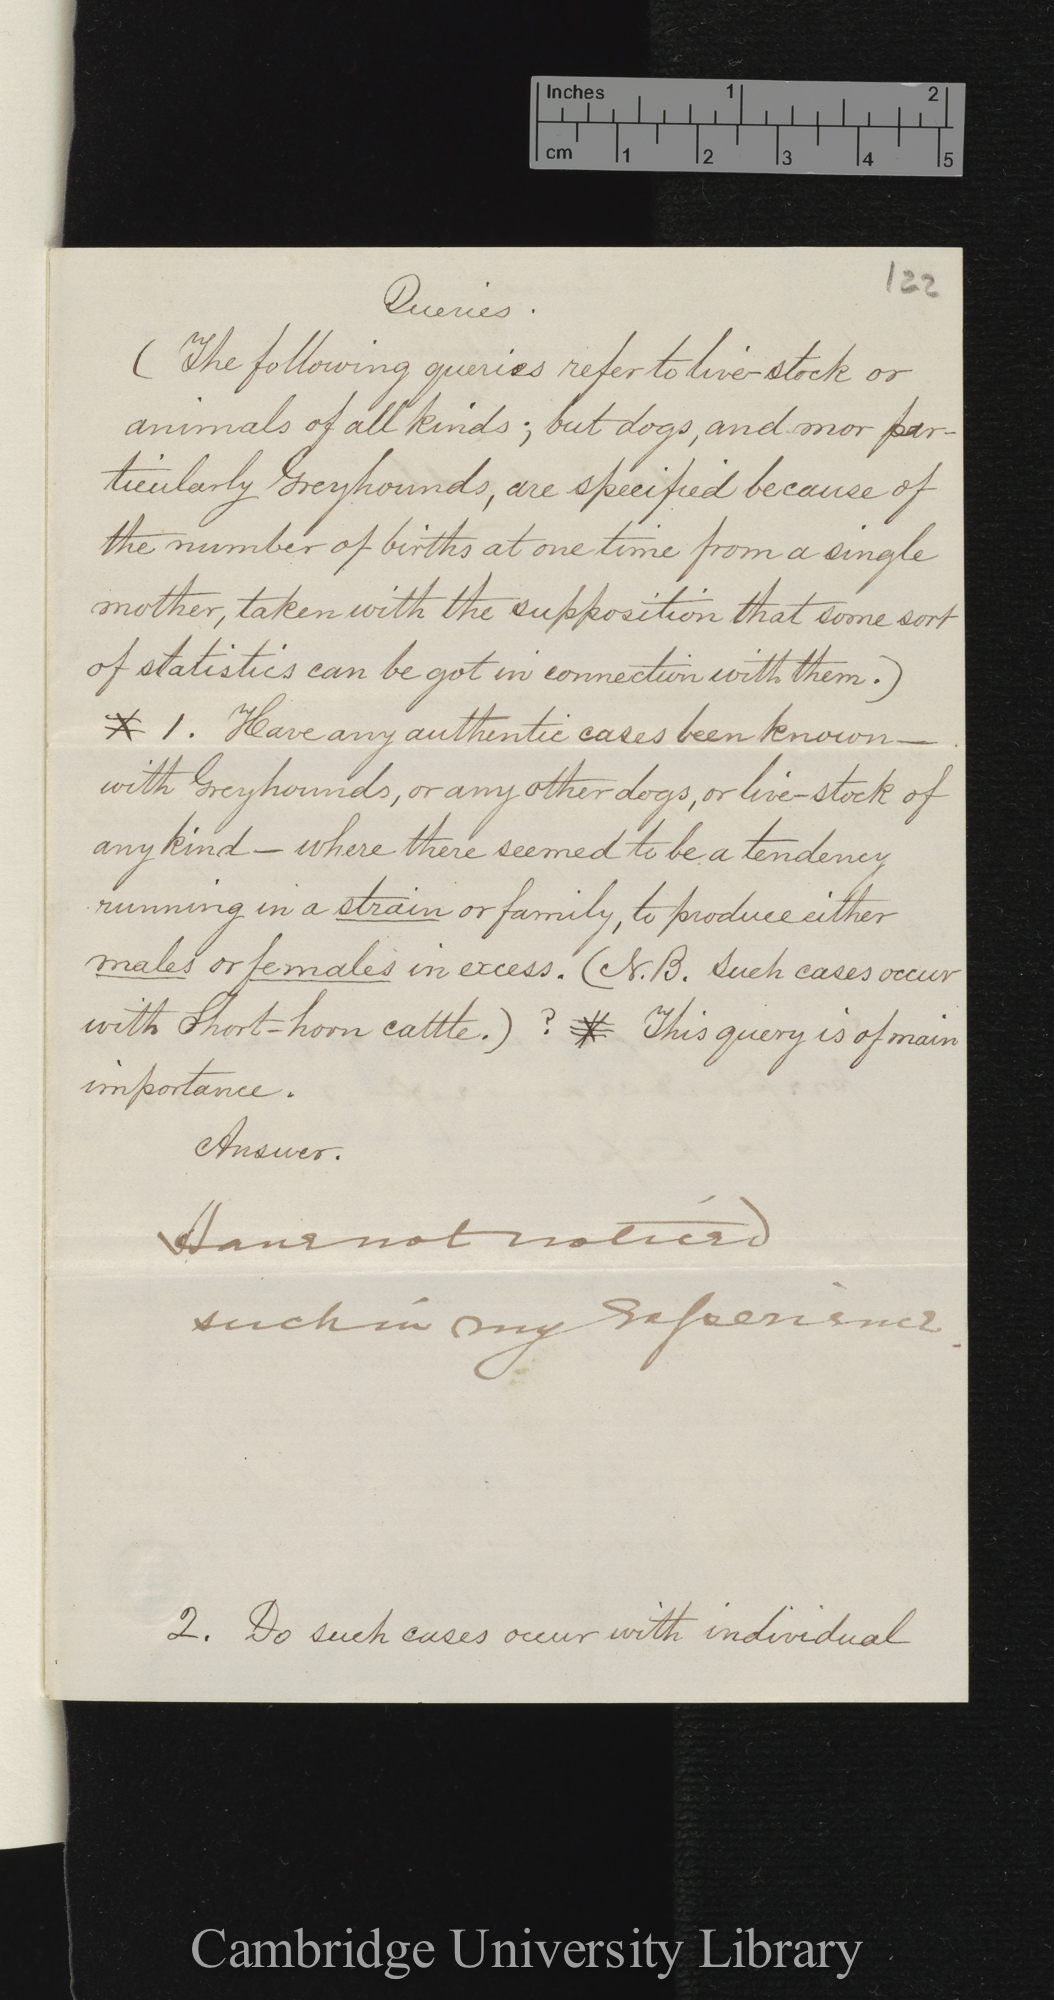 Inches 1 2
cm 1 2 3 4 5
122
Queries.
(The following queries refer to live-stock or
animals of all kinds; but dogs, and mor par-
ticularly Greyhounds, are specified because of
the number of births at one time from a single
mother, taken with the supposition that some sort
of statistics can be got in connection with them.)
1. Have any authentic cases been known —
with Greyhounds, or any other dogs, or live-stock of
any kind — where there seemed to be a tendency
running in a strain or family, to produce either
males or females in excess. (N.B. Such cases occur
with Short-horn cattle.) ? This query is of main
importance.
Answer.
Have not noticed
such in my Experience.
2. Do such cases occur with individual
Cambridge University Library